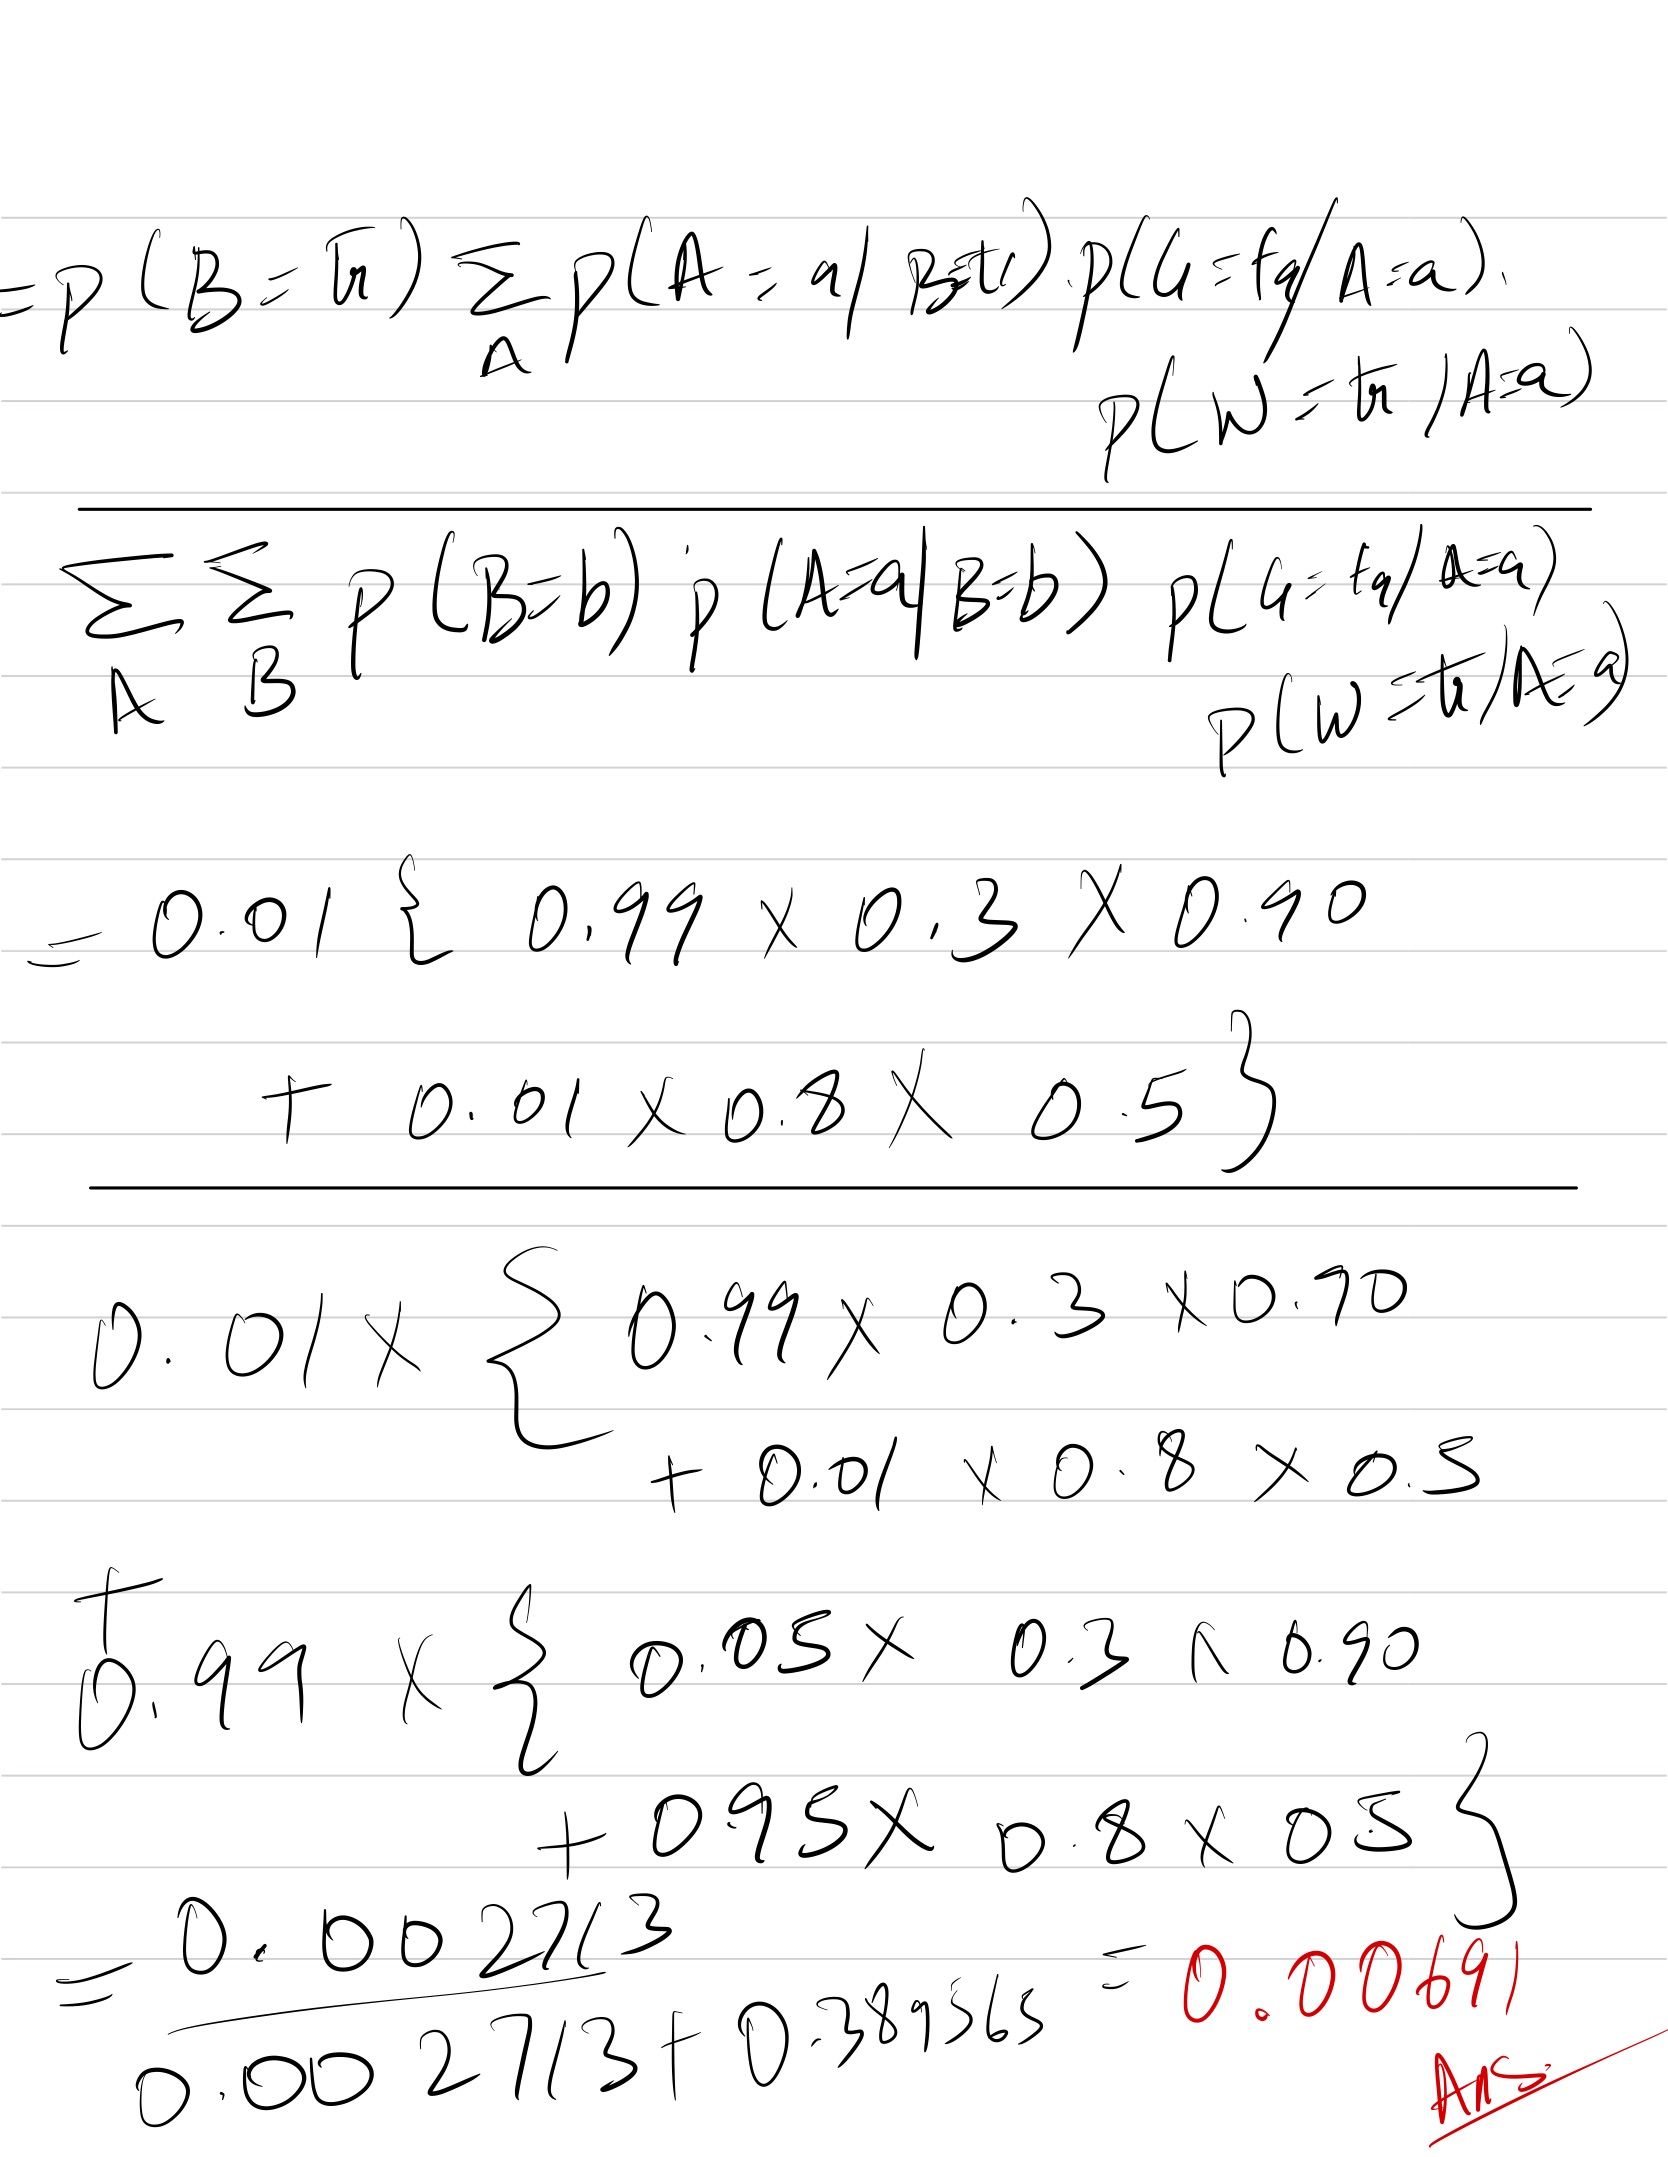 = P (B = tr) Σ P(A = a / B=tr) . P(G = fa / A = a) .
A
P(W = tr / A=a)
Σ Σ P (B=b) . P (A=a | B=b) P(G = fa / A=a)
A B
P(W = tr / A=a)
= 0.01 { 0.99 x 0.3 x 0.90
+ 0.01 x 0.8 x 0.5 }
0.01 x { 0.99 x 0.3 x 0.90
+ 0.01 x 0.8 x 0.5
+
0.99 x { 0.05 x 0.3 x 0.90
+ 0.95 x 0.8 x 0.5 }
= 0.002713
0.002713 + 0.389565 = 0.00691
Ans.